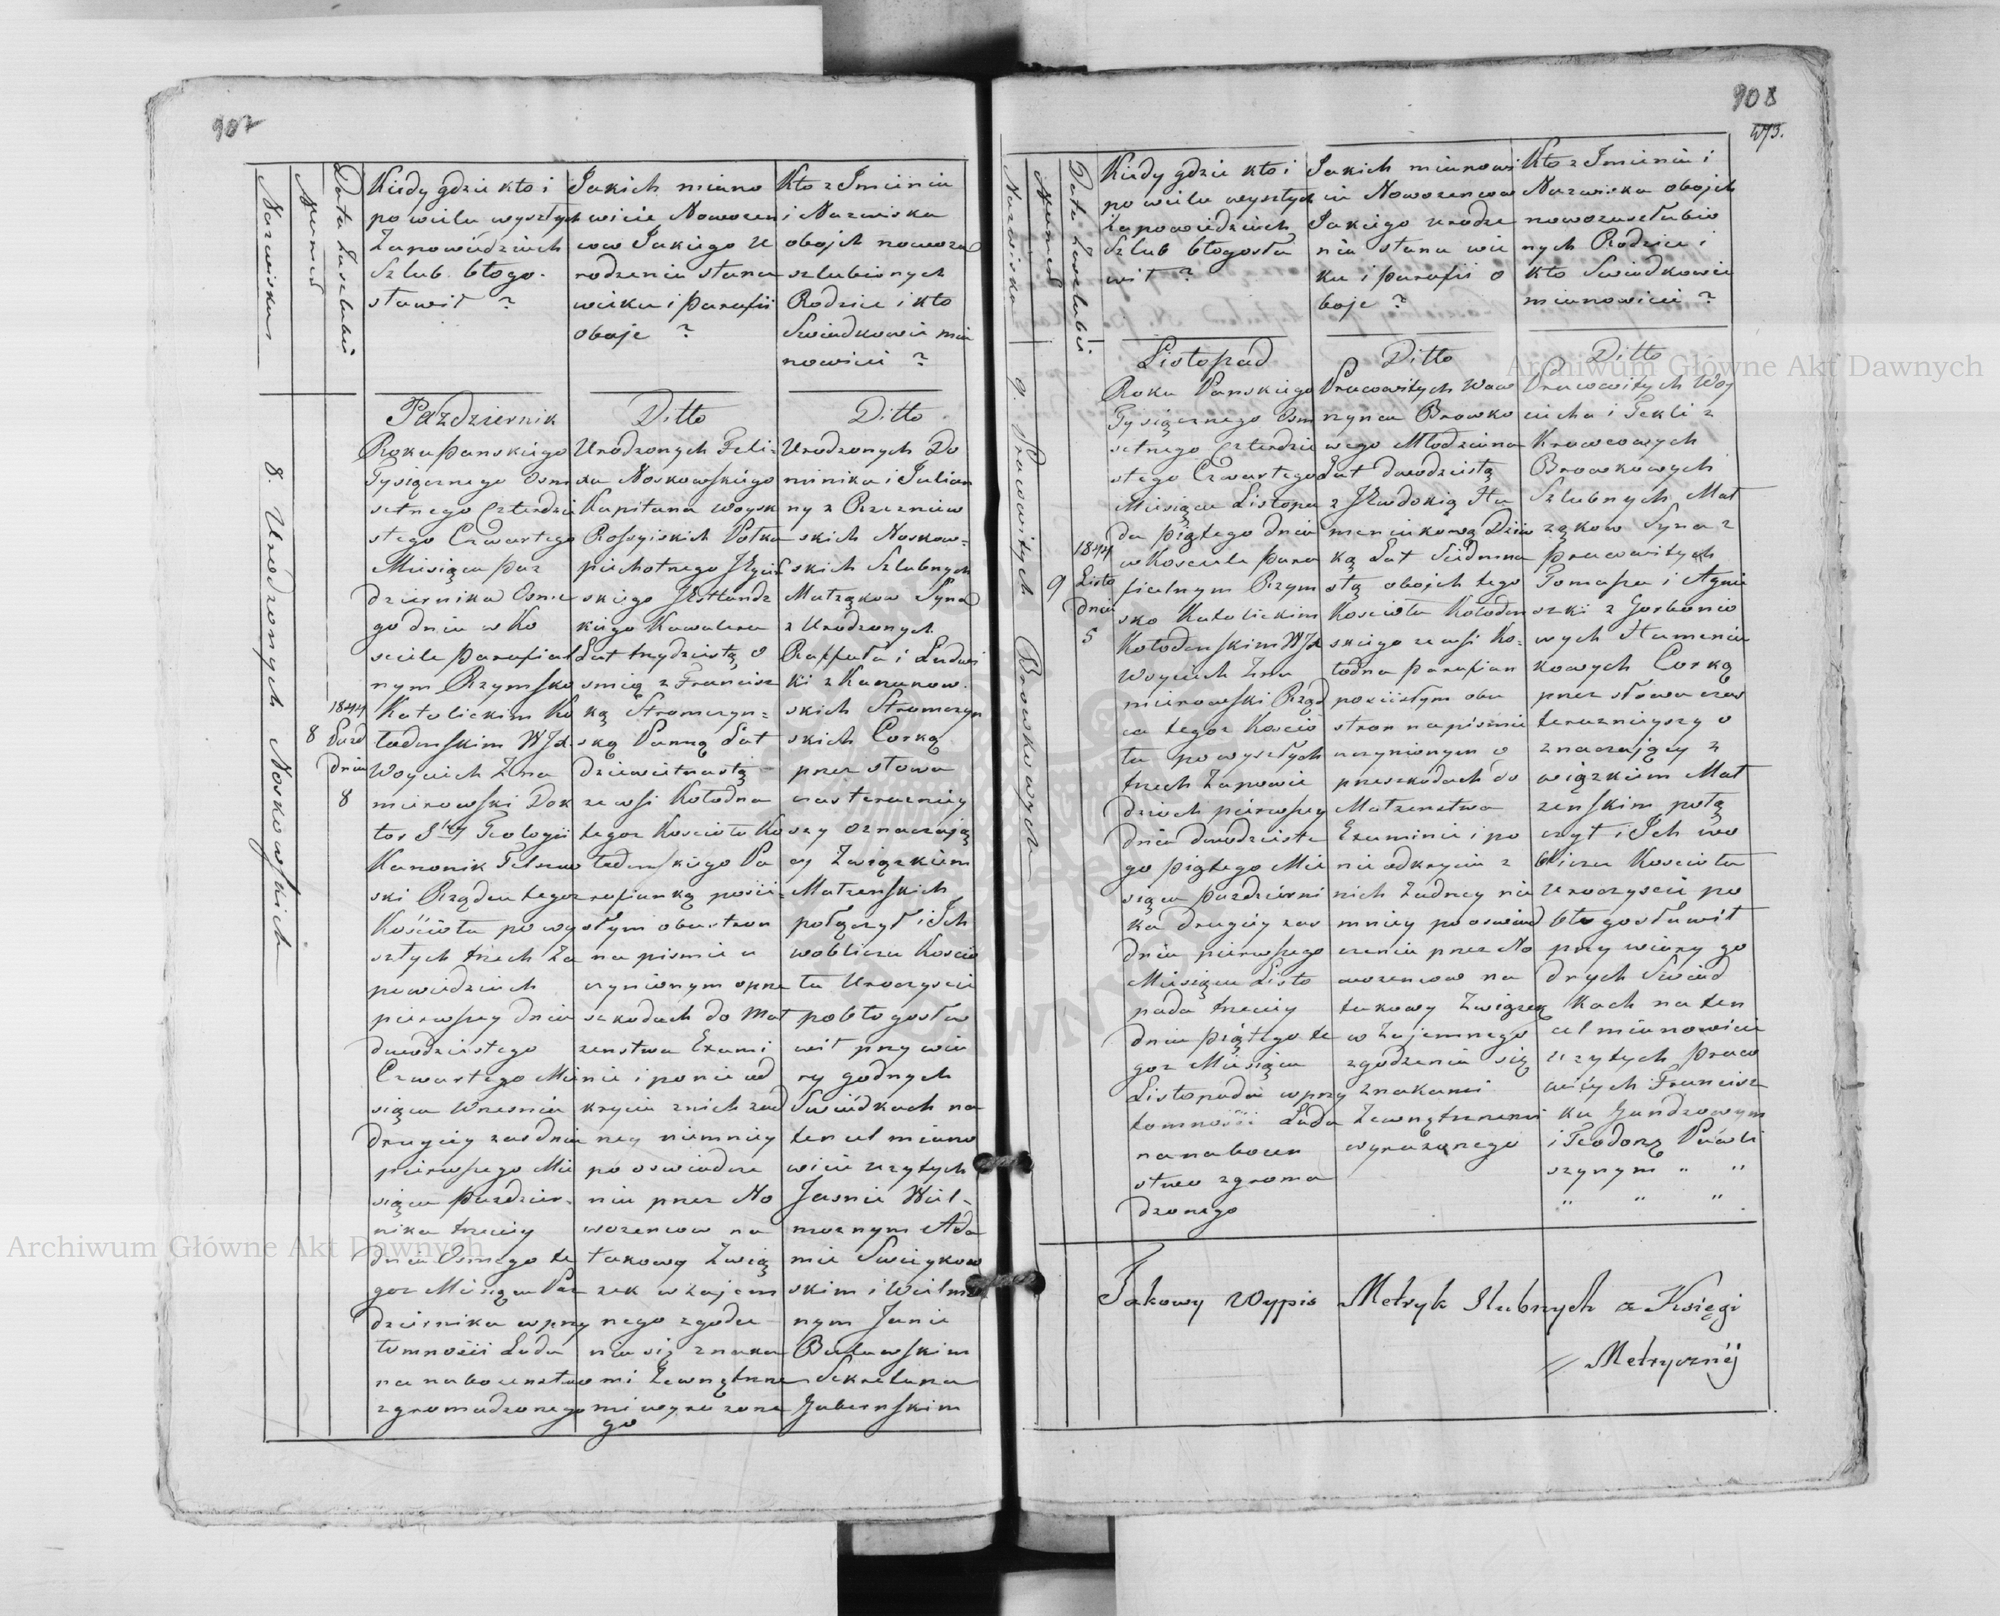 907
Nazwiskus
Numer
Data Zaszlubin
Kiedy gdzie kto i
po wielu wyszłych
Zapowiedziach
Szlub błogo-
sławił ?
Jakich miano
wicie Nowozen
cow Jakiego U
rodzenia stanu
wieku i parafii
oboje ?
Kto z Imienia
i Nazwiska
obojch nowoza
szlubionych
Rodzice i kto
Swiadkowie mia
nowicie ?
8. Urodzonych Noskowskich
8
1844
Pazd
dnia
8
Październik
Roku pańskiego
Tysiącznego Osm
setnego Czterdzie
stego Czwartego
Miesiąca paz
dziernika Osme
go dnia w Ko
sciele parafial
nym Rzymsko
Katolickim Ko
łodenskim WJX
Woyciech Zma
mierowski Dok
tor Stey Teologii
Kanonik
ski Rządca tegoz
Kościoła po wy
szłych trzech Za
powiedziach
pierwszey dnia
dwódziestego
Czwartego Mie
siąca Wrzesnia
drugiey zas dnia
pierwszego Mie
siąca pazdzier-
nika trzeciey
dnia Osmego te
goz Miesiąca Paz
dziernika w przy
tomności Ludu
na nabozenstwo
zgromadzonego
Ditto
Urodzonych Feli-
xa Noskowskiego
Kapitana woysk
Rossyiskich Połku
piechotnego
skiego
kiego Kawalera
Lat trzydziestą o
smią z Francisz
ką Stromczyn-
ską Panną Lat
dziewietnastą
ze wsi Kołodna
tegoz Kościoła Ko
łodenskiego Pa
rafianką pości-
słym obustron
na pismie u
czynionym o prze
szkodach do Mał
zenstwa Exami
nie i po nie od
kryciu z nich zad
ney niemniey
po oswiadcze
niu przez No
wozencow na
takowy Zwią
zek wzajem
nego zgodze
nia się znaka
mi Zewnętrzne
mi wyrazone
go
Ditto
Urodzonych Do
minika i Julian
ny z
skich Noskow-
skich Szlubnych
Małząkow Syna
z Urodzonych
Raffała i Ludwi
ki z Kazanow
skich Stromczyn
skich Corką
przez słowa
czas terazniey
szy oznaczają
cy Związkiem
Małzenskich
połączył i Ich
wobliczu Koscio
ła Uroczyscie
pobłogosła
wił przy wia
ry godnych
Swiadkach na
ten cel miano
wicie uzytych
Jasnie Wiel-
moznym Ada
mie
skim i Wielmo
znym Janie
Butawskim
Sekretarza
Gubernskim
908
473.
Nazwiska
Numer
Data Zaszlubin
Kiedy gdzie kto i
po wielu wyszłych
Zapowiedziach
Szlub błogosła
wił ?
Jakich mianowi
cie Nowozencow
Jakiego urodze
nia stanu wie
ku i parafii o
boje ?
Kto z Imienia i
Nazwiska obojch
nowozaszlubio
nych Rodzice i
kto Swiadkowie
mianowicie ?
9. Pracowitych Browkowych
9
1844
Listo
dnia
5
Listopad
Roku Pańskiego
Tysiącznego Osm
setnego Czterdzie
stego Czwartego
Miesiąca Listopa
da piątego dnia
w Kosciele para
fialnym Rzym
sko Katolickim
Kołodenskim WJX
Woyciech Zma
mierowski Rząd
ca tegoz Koscio
ła po wyszłych
trzech Zapowie
dziach pierwszey
dnia dwudzieste
go piątego Mie
siąca pazdzierni
ka drugiey zas
dnia pierwszego
Miesiąca Listo
pada trzeciey
dnia piątego te
goz Miesiąca
Listopada w przy
tomności Ludu
na nabozen
stwo zgroma
dzonego
Ditto
Pracowitych Waw
rzynca Browko
wego Młodziana
Lat dwodziestą
z Ha
menciukową Dziw
ką Lat Siedmna
stą obojch tego
Kościoła Kołoden
skiego ze wsi Ko-
łodna parafian
pościsłym obu
stron na pismie
uczynionym o
przeszkodach do
Małzenstwa
Examinie i po
nie odkryciu z
nich Zadney nie
mniey po oswiad
czeniu przez No
wozencow na
takowy Związek
wzajemnego
zgodzenia się
Znakami
Zewnętrznemi
wyrazonego
Ditto
Pracowitych Woy
ciecha i Tekli z
Krawcowych
Browkowych
Szlubnych Mał
ząkow Syna z
pracowitych
Tomasza i Agnie
szki z Gorbanio
wych Hamenciu
kowych Corką
przez słowa czas
teraznieyszy o
znaczaiący z
wiązkiem Mał
zenskim połą
czył i Ich wo
bliczu Kościoła
Uroczyscie po
błogosławił
przy wiary go
dnych Swiad
kach na ten
cel mianowicie
uzytych prac
owitych Francisz
ku Gandzowym
i Teodorą
szynym " "
" " "
Takowy Wypis Metryk Slubnych z Księgi
Metryczney
Archiwum Główne Akt Dawnych
Archiwum Główne Akt Dawnych